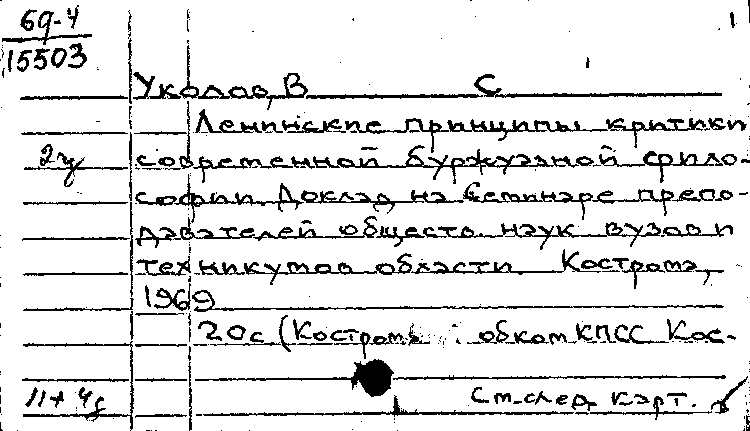 69-4
15503
1
Уколов, В С
Ленинские принципы критики
2ч современной буржуазной фило-
софии. Доклад на Семинаре препо-
давателей обществ. наук вузов и
техникумов области. Кострома,
1969
20с (Костром обком КПСС Кос-
11+4
См. след. карт.